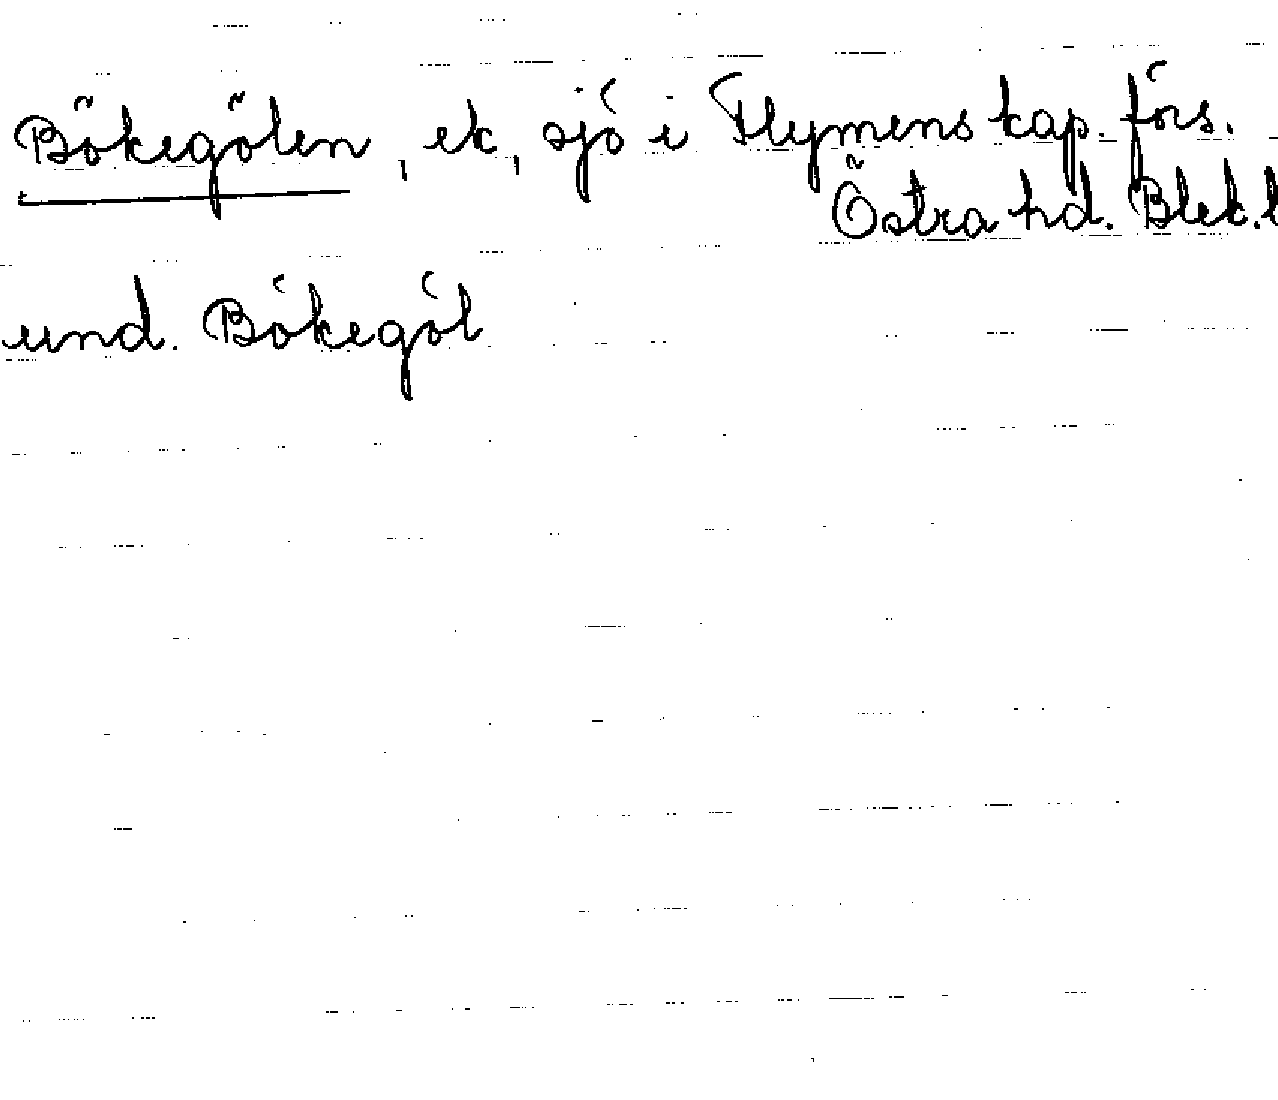 Bökegölen, ek, sjö i Flymens kap. förs.
Östra hd. Blek. l
und. Bökegöl